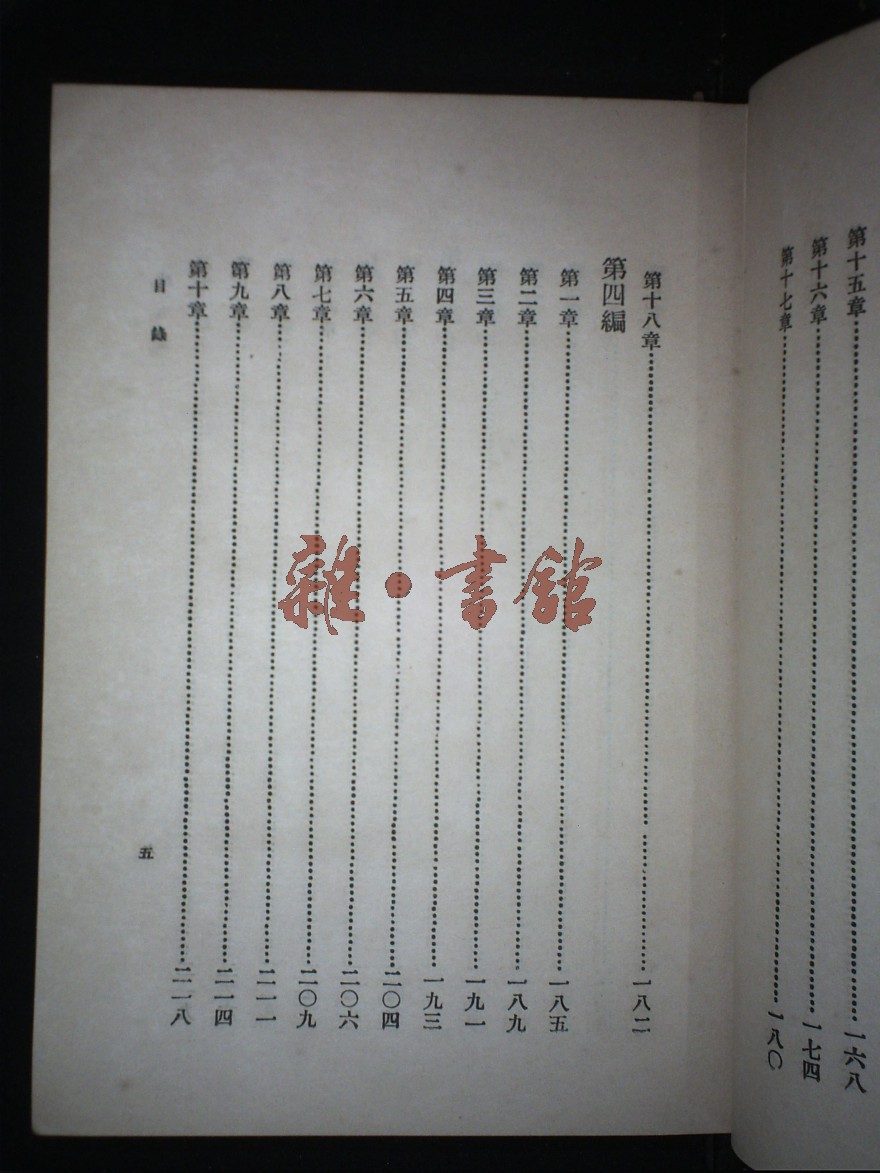 第十五章………一六八
第十六章………一七四
第十七章………一八〇
第十八章………一八二
第四編
第一章………一八五
第二章………一八九
第三章………一九一
第四章………一九三
第五章………二〇四
第六章………二〇六
第七章………二〇九
第八章………二一一
第九章………二一四
第十章………二一八
目錄
五
雜·書館